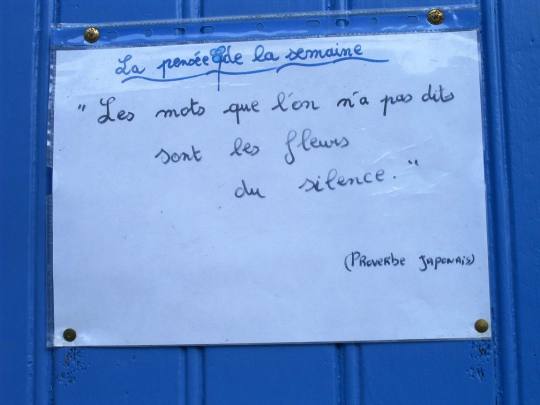 La pensée de la semaine
"Les mots que l'on n'a pas dits
sont les fleurs
du silence."
(Proverbe Japonais)